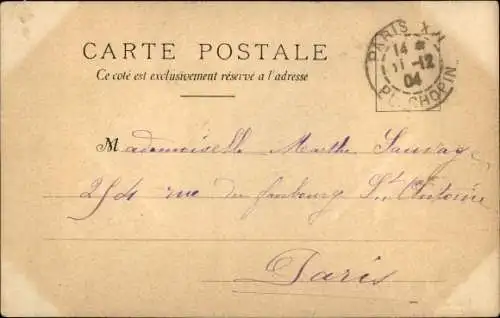 CARTE POSTALE
Ce coté est exclusivement réservé a l'adresse
PARIS X
14
11 -12
04
PL. CHOPIN
Mademoiselle Marthe Sauvage
254 rue du faubourg St Antoine
Paris